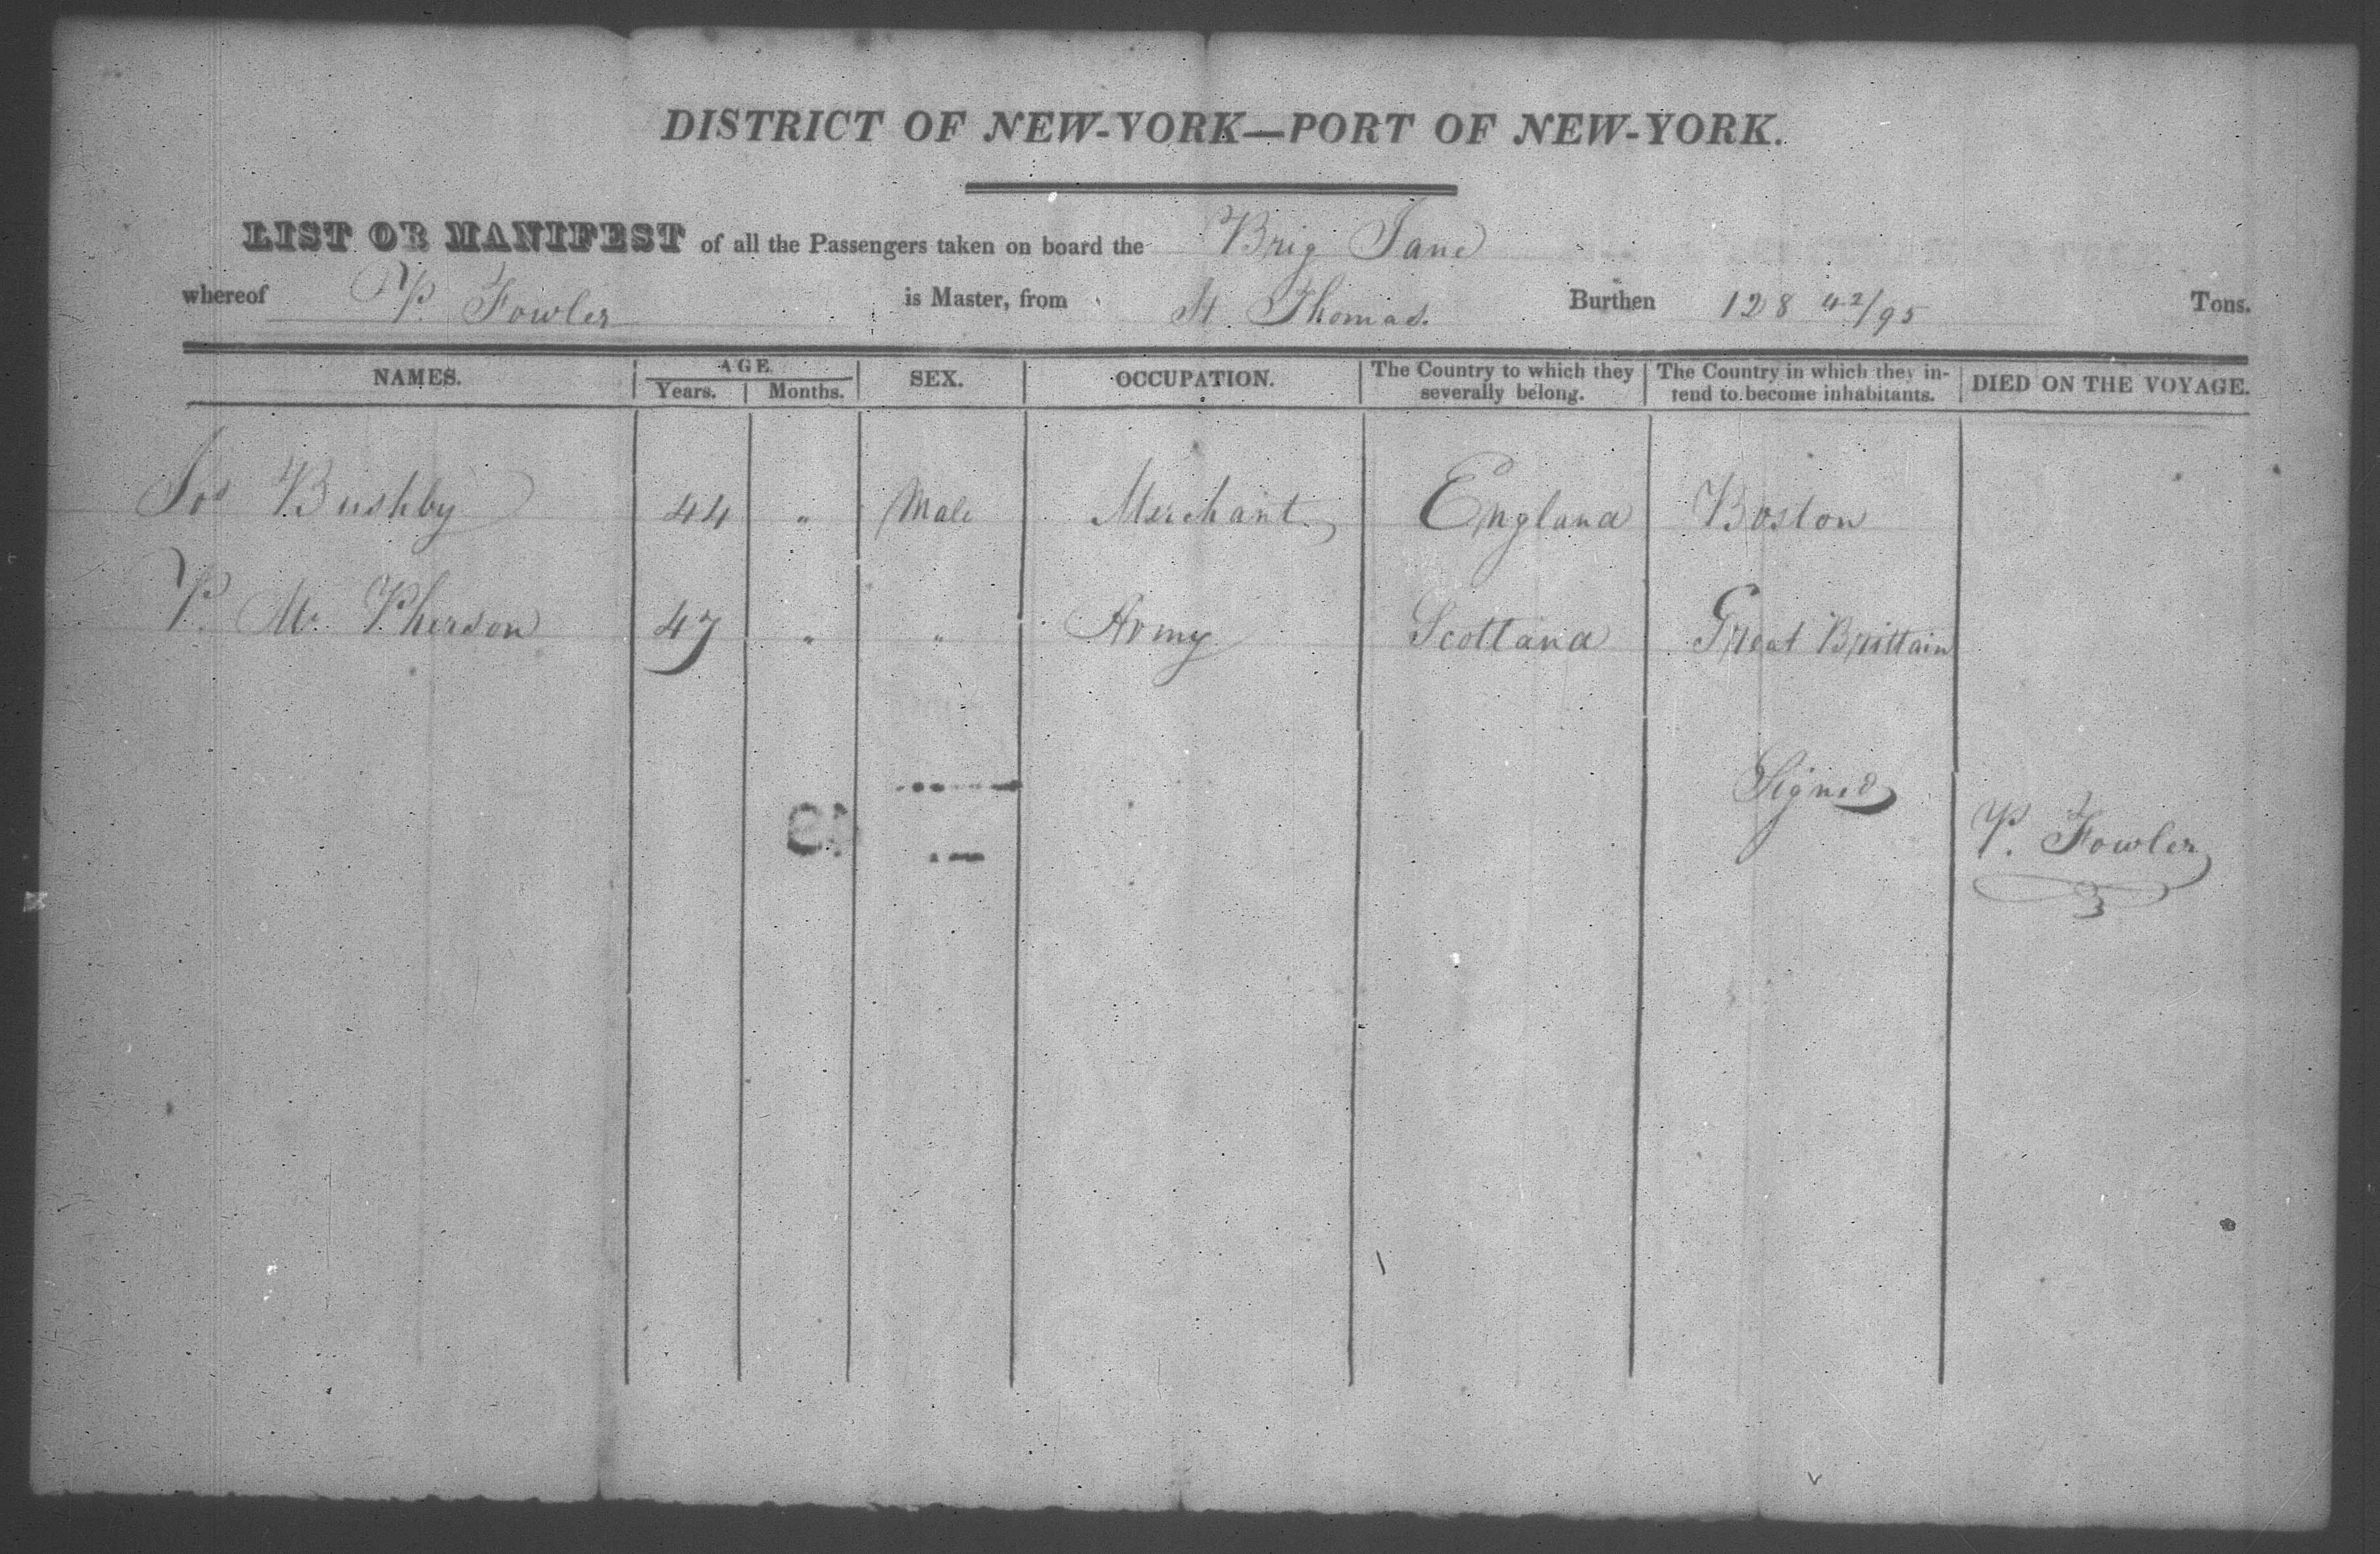 DISTRICT OF NEW-YORK—PORT OF NEW-YORK.
LIST OR MANIFEST of all the Passengers taken on board the Brig Jane
whereof P. Fowler is Master, from St. Thomas. Burthen 128 42/95 Tons.
NAMES. AGE. Years. Months. SEX. OCCUPATION. The Country to which they severally belong. The Country in which they intend to become inhabitants. DIED ON THE VOYAGE.
Jos Bushby 44 " Male Merchant England Boston
P. Mc Pherson 47 " " Army Scotland Great Brittain
Signed
P. Fowler